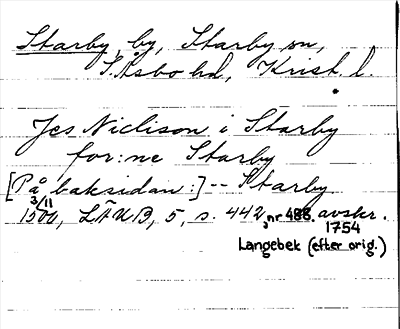 Starby, by, Starby sn,
S. Åsbo hd, Krist. l.
Jes Niclison i Starby
for:ne Starby
[På baksidan:] -- Starby
3/11
1500, LÄUB, 5, s. 442, nr 488. avskr.
1754
Langebek (efter orig.)